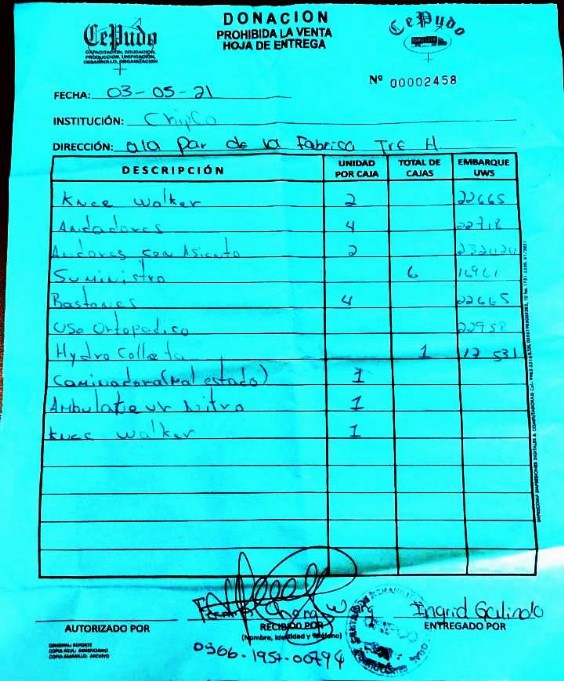 CePudo
CAPACITACIÓN, EDUCACIÓN,
PRODUCCIÓN, UNIFICACIÓN,
DESARROLLO, ORGANIZACIÓN
DONACION
PROHIBIDA LA VENTA
HOJA DE ENTREGA
CePudo
Nº 00002458
FECHA: 03-05-21
INSTITUCIÓN:
DIRECCIÓN: ala par de la Fabrica Tre H
DESCRIPCIÓN UNIDAD POR CAJA TOTAL DE CAJAS EMBARQUE UWS
Knee walker 2 22665
Andadores 4 22718
Andores con Asiento 2
Suministro 6 16961
Bastones 4 22665
Uso Ortopedico 22958
Hydro Colleta 1 17 531
Caminadora (Mal estado) 1
1
Knee walker 1
AUTORIZADO POR
RECIBIDO POR
(Nombre, Identidad y Teléfono)
0366-1957-00794
Ingrid Galindo
ENTREGADO POR
ORIGINAL: REPORTE
COPIA AZUL: INVENTARIO
COPIA AMARILLO: ARCHIVO